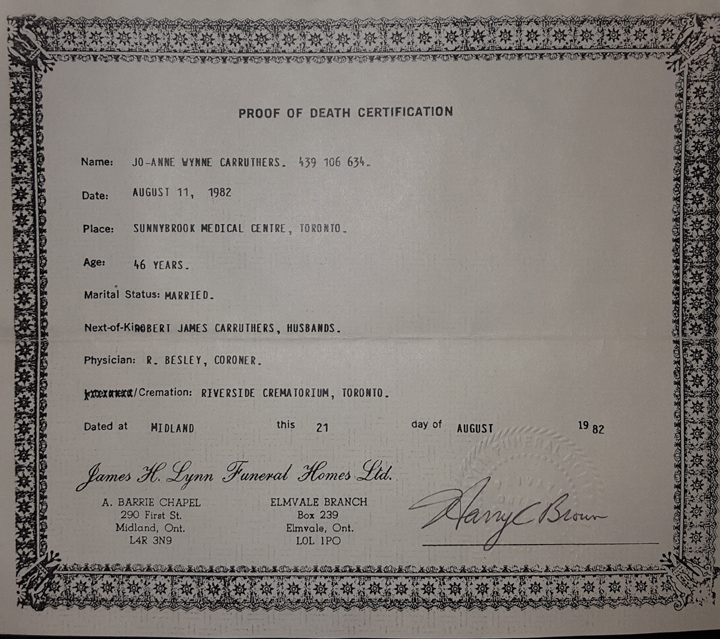 PROOF OF DEATH CERTIFICATION
Name: JO-ANNE WYNNE CARRUTHERS. 439 106 634.
Date: AUGUST 11, 1982
Place: SUNNYBROOK MEDICAL CENTRE, TORONTO.
Age: 46 YEARS.
Marital Status: MARRIED.
Next-of-Kin ROBERT JAMES CARRUTHERS, HUSBANDS.
Physician: R. BESLEY, CORONER.
/Cremation: RIVERSIDE CREMATORIUM, TORONTO.
Dated at MIDLAND this 21 day of AUGUST 19 82
James H. Lynn Funeral Homes Ltd.
A. BARRIE CHAPEL
290 First St.
Midland, Ont.
L4R 3N9
ELMVALE BRANCH
Box 239
Elmvale, Ont.
L0L 1PO
Harry C Brown